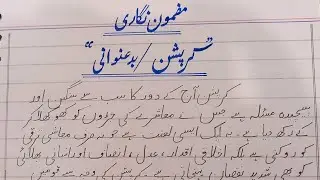 مضمون نگاری
"کرپشن / بدعنوانی"
کرپشن آج کے دور کا سب سے سنگین اور
پیچیدہ مسئلہ ہے جس نے معاشرے کی جڑوں کو کھوکھلا کر
کے رکھ دیا ہے۔ یہ ایک ایسی لعنت ہے جو نہ صرف معاشی ترقی
کو روکتی ہے بلکہ اخلاقی اقدار، عدل و انصاف اور انسانی بھلائی
کو بھی شدید نقصان پہنچاتی ہے۔ کرپشن کی وجہ سے قومیں